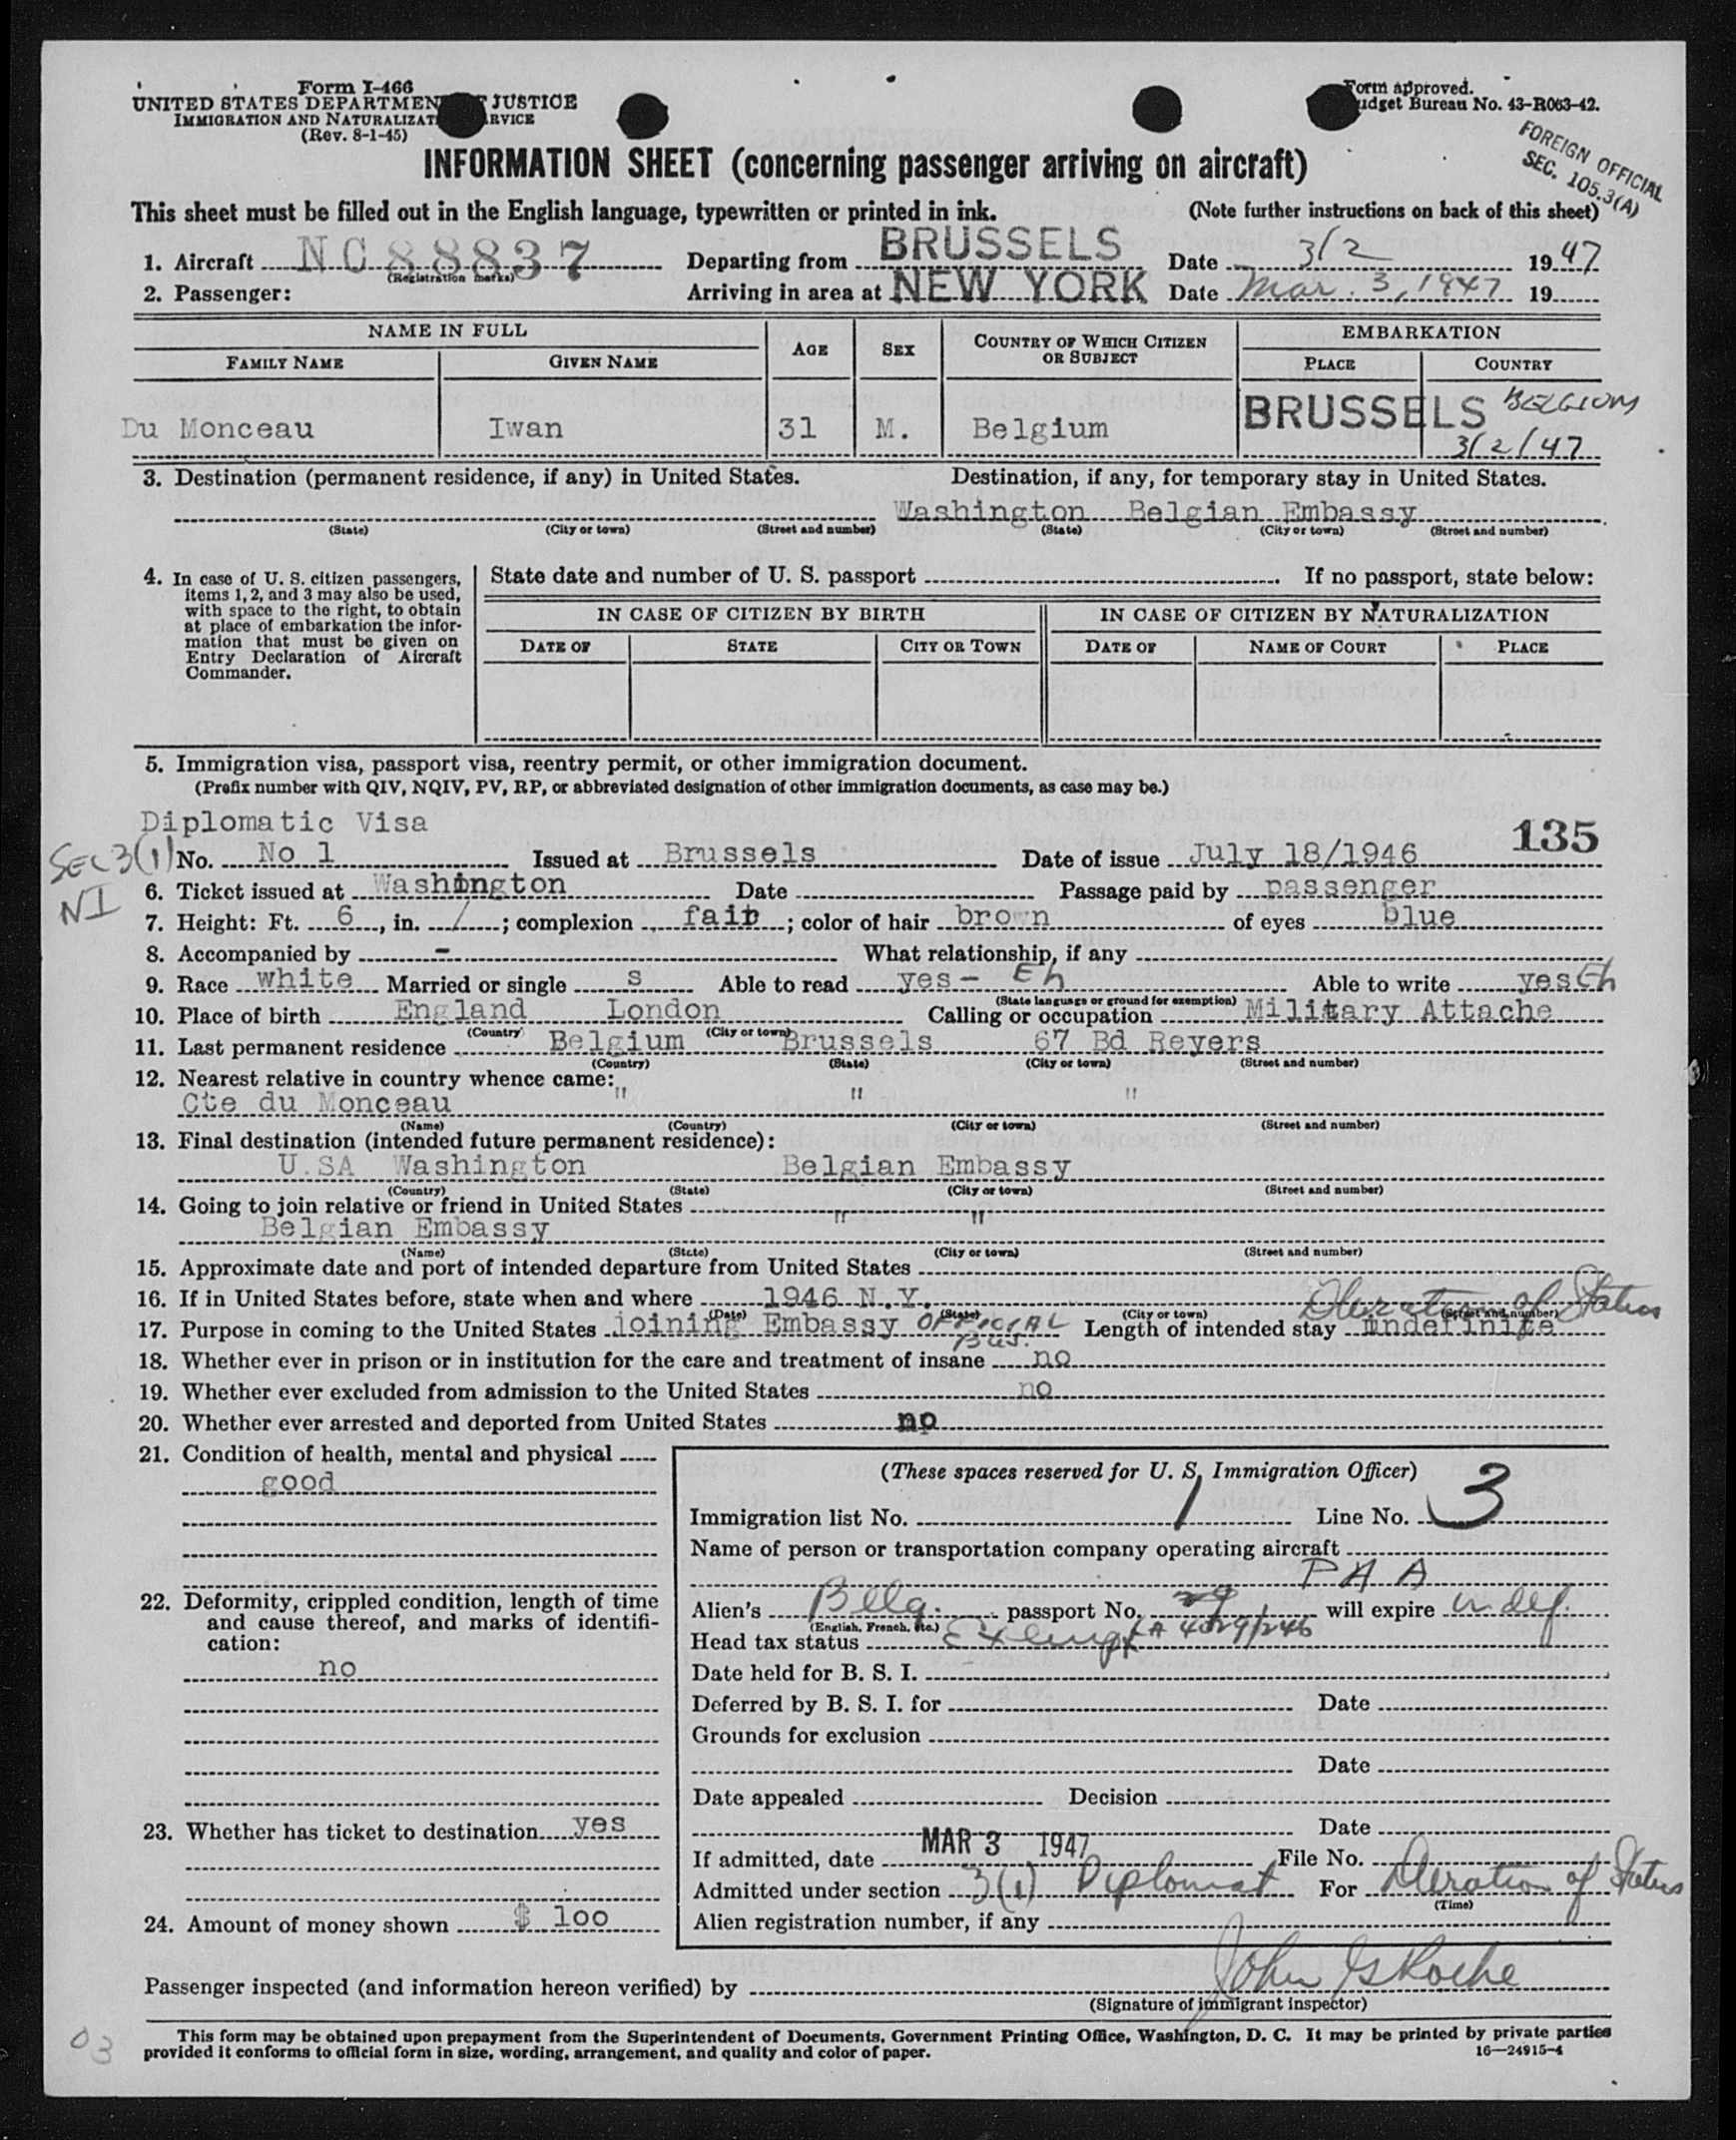 Form I-466
UNITED STATES DEPARTMEN JUSTICE
IMMIGRATION AND NATURALIZAT RVICE
(Rev. 8-1-45)
Form approved.
udget Bureau No. 43-R063-42.
FOREIGN OFFICIAL
SEC. 105.3(A)
INFORMATION SHEET (concerning passenger arriving on aircraft)
This sheet must be filled out in the English language, typewritten or printed in ink. (Note further instructions on back of this sheet)
1. Aircraft NC 88837 Departing from BRUSSELS Date 3/2 1947
(Registration marks)
2. Passenger: Arriving in area at NEW YORK Date Mar. 3, 1947 19
NAME IN FULL AGE SEX COUNTRY OF WHICH CITIZEN OR SUBJECT EMBARKATION
FAMILY NAME GIVEN NAME PLACE COUNTRY
Du Monceau Iwan 31 M. Belgium BRUSSELS BELGIUM
3/2/47
3. Destination (permanent residence, if any) in United States. Destination, if any, for temporary stay in United States.
Washington Belgian Embassy
(State) (City or town) (Street and number) (State) (City or town) (Street and number)
4. In case of U. S. citizen passengers, items 1, 2, and 3 may also be used, with space to the right, to obtain at place of embarkation the information that must be given on Entry Declaration of Aircraft Commander.
State date and number of U. S. passport If no passport, state below:
IN CASE OF CITIZEN BY BIRTH IN CASE OF CITIZEN BY NATURALIZATION
DATE OF STATE CITY OR TOWN DATE OF NAME OF COURT PLACE
5. Immigration visa, passport visa, reentry permit, or other immigration document.
(Prefix number with QIV, NQIV, PV, RP, or abbreviated designation of other immigration documents, as case may be.)
Diplomatic Visa 135
SEC 3(1) No. No 1 Issued at Brussels Date of issue July 18/1946
NI 6. Ticket issued at Washington Date Passage paid by passenger
7. Height: Ft. 6, in. /; complexion fair; color of hair brown of eyes blue
8. Accompanied by - What relationship, if any
9. Race white Married or single s Able to read yes - Eh Able to write yes Eh
(State language or ground for exemption)
10. Place of birth England London Calling or occupation Military Attache
(Country) (City or town)
11. Last permanent residence Belgium Brussels 67 Bd Reyers
(Country) (State) (City or town) (Street and number)
12. Nearest relative in country whence came:
Cte du Monceau " " "
(Name) (Country) (City or town) (Street and number)
13. Final destination (intended future permanent residence):
U.SA Washington Belgian Embassy
(Country) (State) (City or town) (Street and number)
14. Going to join relative or friend in United States
Belgian Embassy " "
(Name) (State) (City or town) (Street and number)
15. Approximate date and port of intended departure from United States
16. If in United States before, state when and where 1946 N.Y.
(Date) (State) (City or town) (Street and number)
of Status
17. Purpose in coming to the United States joining Embassy OFFICIAL BUS. Length of intended stay undefinite
18. Whether ever in prison or in institution for the care and treatment of insane no
19. Whether ever excluded from admission to the United States no
20. Whether ever arrested and deported from United States no
21. Condition of health, mental and physical
good
22. Deformity, crippled condition, length of time and cause thereof, and marks of identification:
no
23. Whether has ticket to destination yes
24. Amount of money shown $ 100
(These spaces reserved for U. S. Immigration Officer)
Immigration list No. 1 Line No. 3
Name of person or transportation company operating aircraft
P A A
Alien's Belg. passport No. will expire indef.
(English, French, etc.)
Head tax status Exempt
Date held for B. S. I.
Deferred by B. S. I. for Date
Grounds for exclusion
Date
Date appealed Decision
Date
If admitted, date MAR 3 1947 File No.
Admitted under section 3(1) Diplomat For of Status
(Time)
Alien registration number, if any
Passenger inspected (and information hereon verified) by John Roche
(Signature of immigrant inspector)
This form may be obtained upon prepayment from the Superintendent of Documents, Government Printing Office, Washington, D. C. It may be printed by private parties
provided it conforms to official form in size, wording, arrangement, and quality and color of paper. 16—24915-4
03